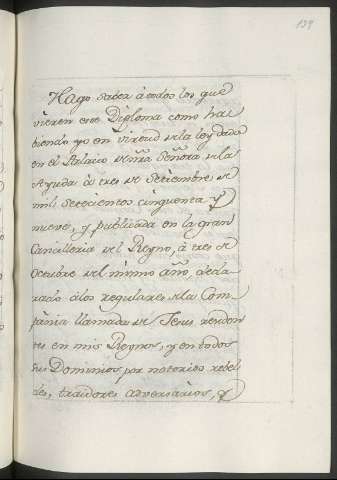 139
Hago saver à todos los que
vieren este Diploma como ha=
biendo yo en virtud de la ley dada
en el Palacio de ñra Señora de la
Ayuda à tres de Setiembre de
mil setecientos cinquenta y
nueve, y publicada en la gran
Cancilleria del Reyno, à tres de
Octubre del mismo año, decla
rado à los regulares de la Com
pañia llamada de Jesus, residen
tes en mis Reynos, y en todos
sus Dominios por notorios rebel
des, traidores adversarios, y